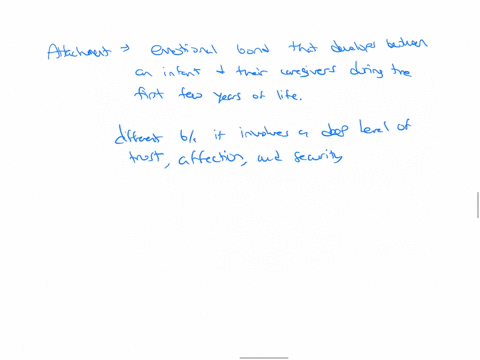 Attachment → emotional bond that develops between
an infant & their caregivers during the
first few years of life.
different b/c it involves a deep level of
trust, affection, and security